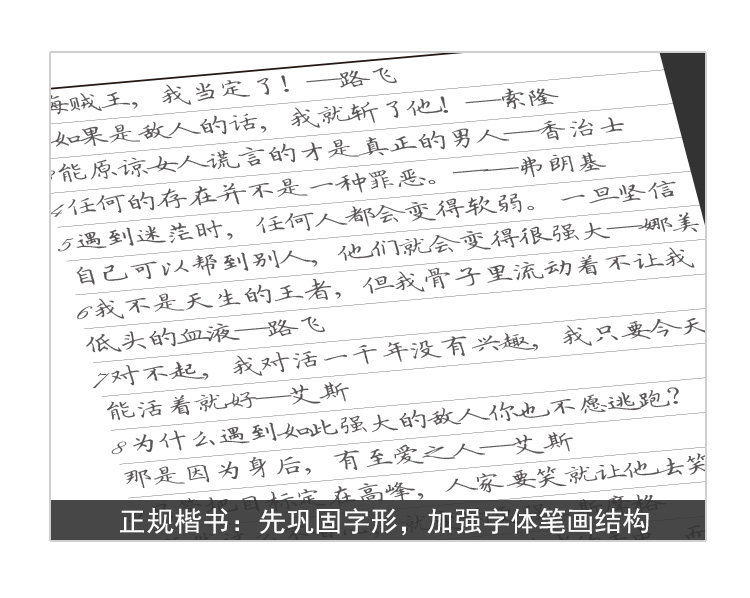 海贼王，我当定了！—路飞
如果是敌人的话，我就斩了他！—索隆
能原谅女人谎言的才是真正的男人—香治士
4任何的存在并不是一种罪恶。——弗朗基
5遇到迷茫时，任何人都会变得软弱。一旦坚信
自己可以帮到别人，他们就会变得很强大—娜美
6我不是天生的王者，但我骨子里流动着不让我
低头的血液—路飞
7对不起，我对活一千年没有兴趣，我只要今天
能活着就好—艾斯
8为什么遇到如此强大的敌人你也不愿逃跑？
那是因为身后，有至爱之人—艾斯
把目标定在高峰，人家要笑就让他去笑
正规楷书：先巩固字形，加强字体笔画结构